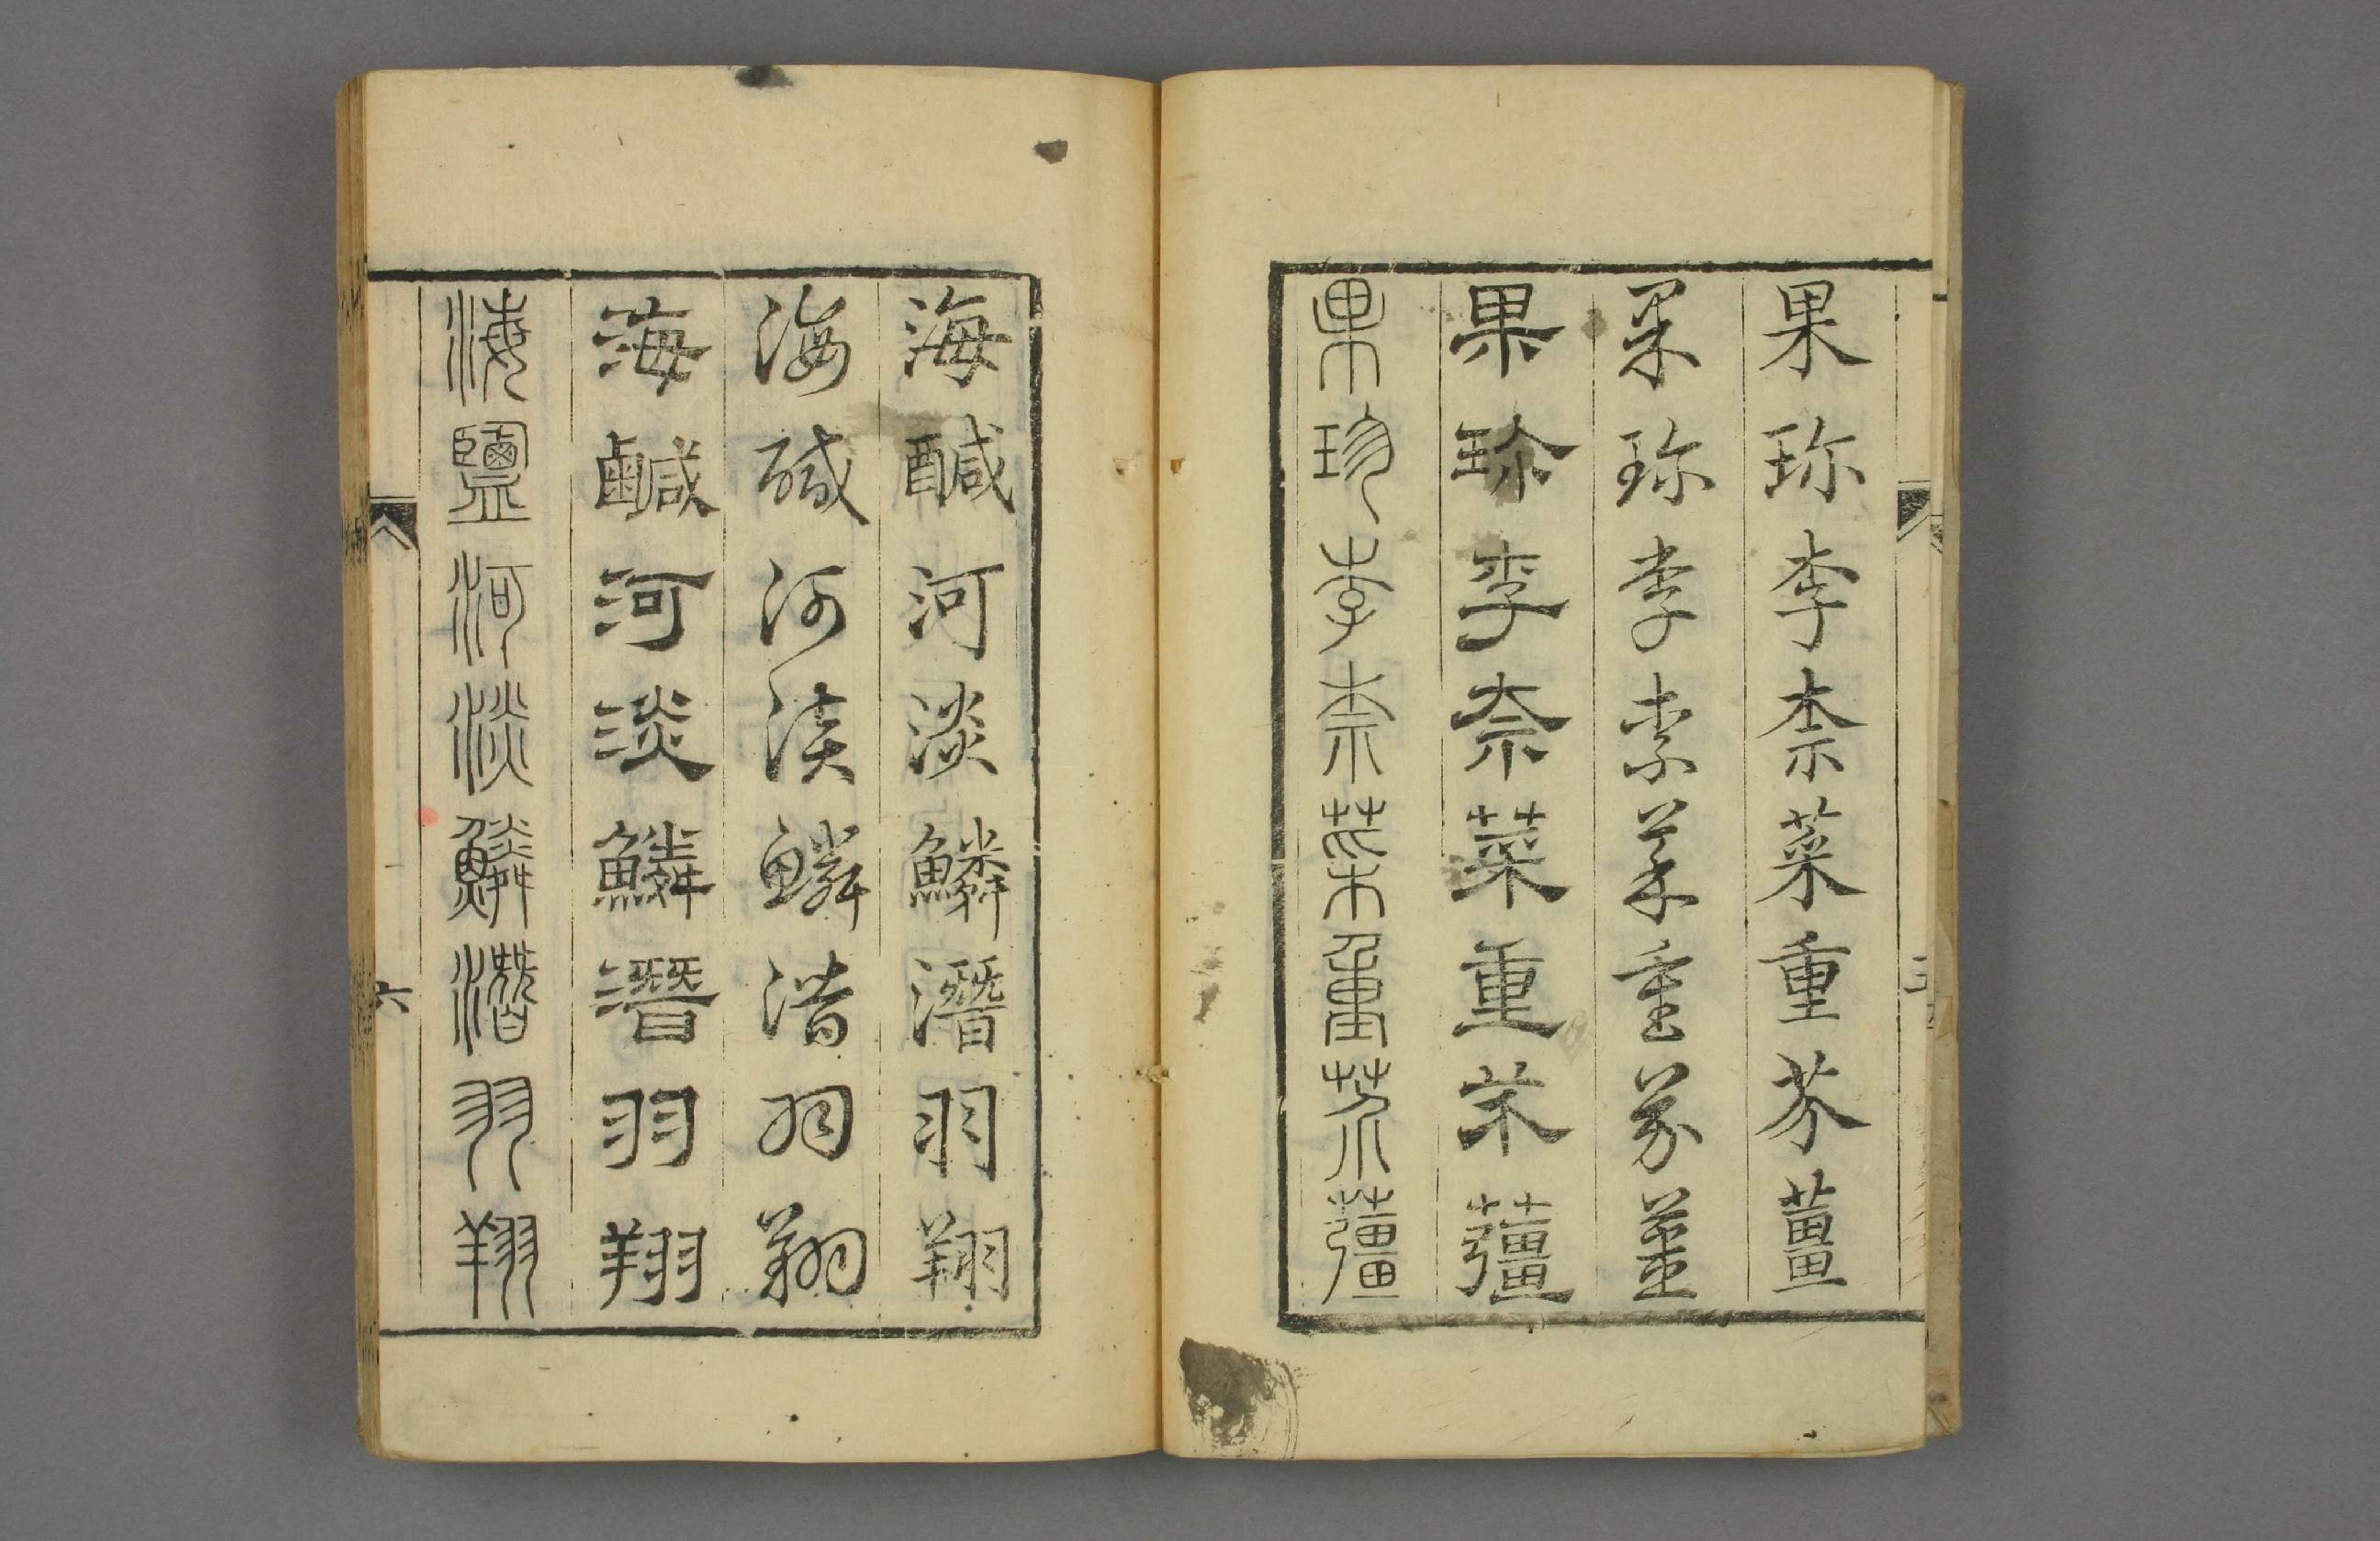 果珎李柰菜重芥薑
果珎李柰菜重芥薑
果珎李奈菜重芥薑
果珍李柰菜重芥薑
海醎河淡鱗潛羽翔
海碱河淡鱗潛羽翔
海鹹河淡鱗潛羽翔
海鹽河淡鱗潛羽翔
六